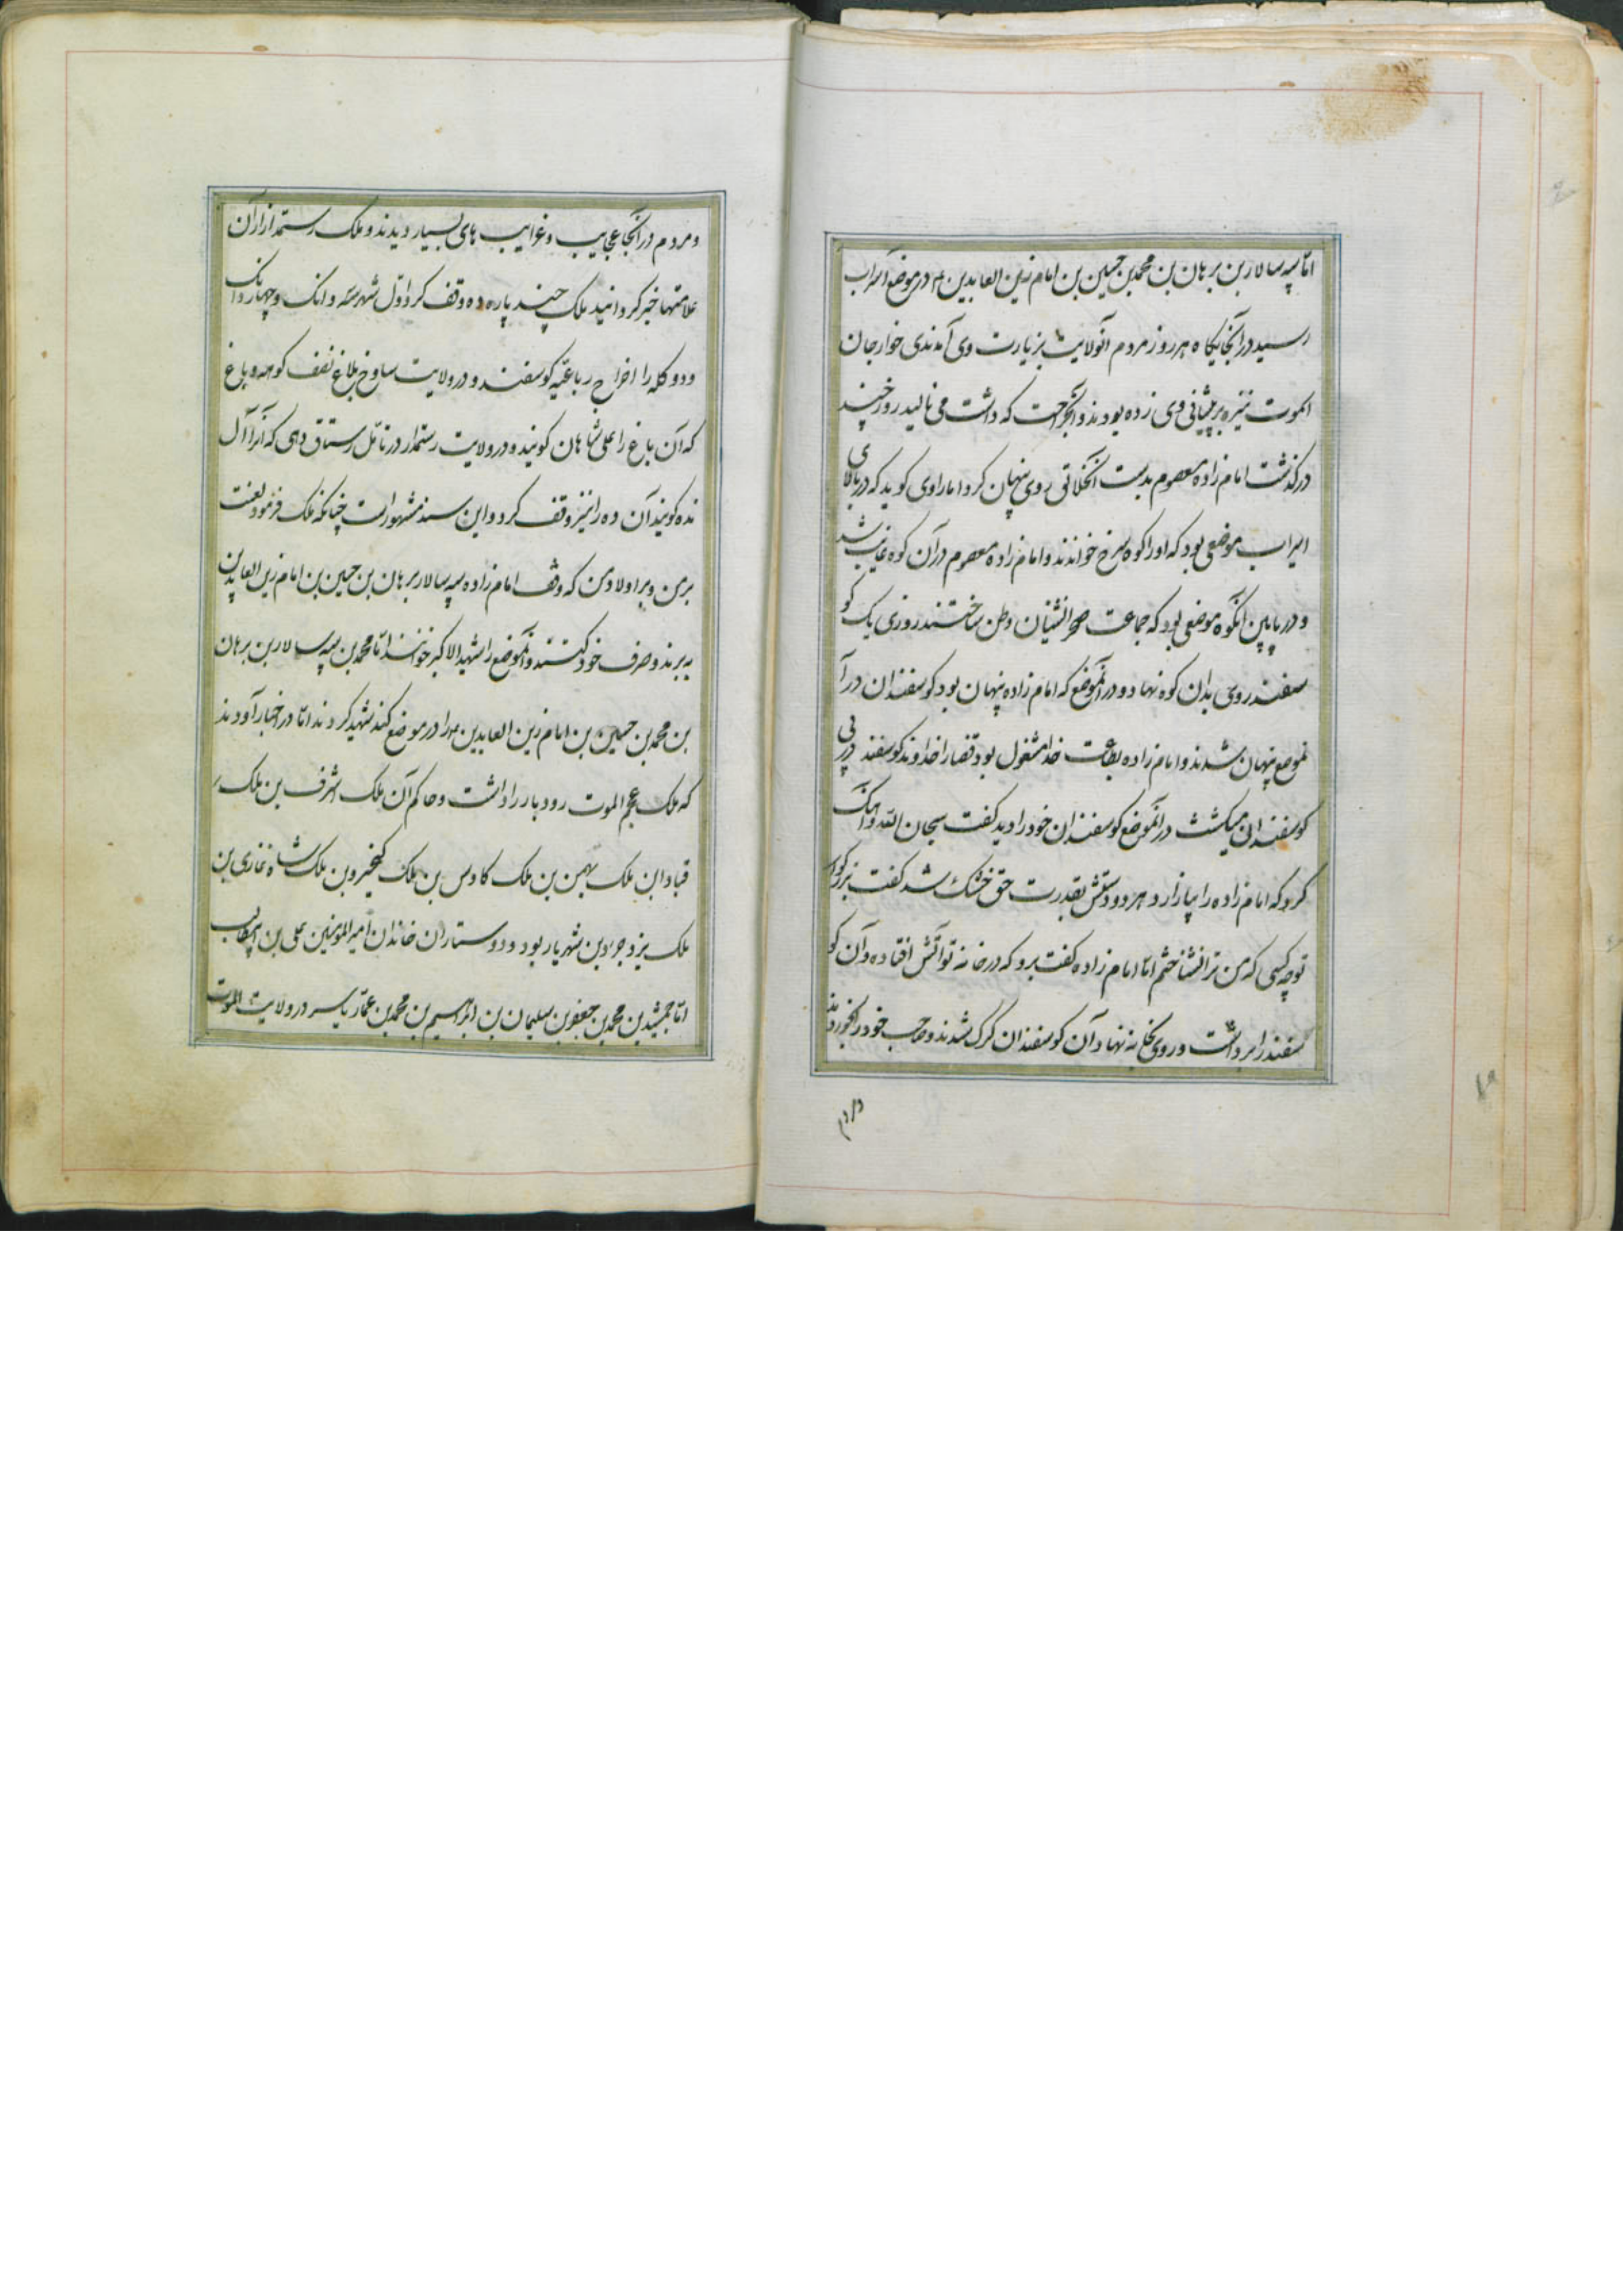 اما سپه سالار بن برهان بن محمد بن حسین بن امام زین العابدین ۴ در موضع آسراب
رسید در آنجایکاه هر روز مردم آنولایت بزیارت وی آمدندی خوارجان
الموت نیزه بر پیشانی وی زده بودند و آنجراحت که داشت می نالید روز چند
درکذشت امام زاده معصوم بدست روی پنهان کرد اما راوی کوید که در بالای
اسراب موضعی بود که اورا کوه سرخ خواندند و امام زاده معصوم در آن کوه غایب شد
و در پایین آنکوه موضعی بود که جماعت صحرانشینان وطن ساختند روزی یک کو
سفند روی بدان کوه نهاد و در آنموضع که امام زاده پنهان بود کوسفندان در آ
نموضع پنهان شدند و امام زاده بطاعت خدا مشغول بود قضارا خداوند کوسفند در پی
کوسفندان میکشت در آنموضع کوسفندان خود را دید کفت سبحان الله و آهنک
کرد که امام زاده را بیازارد هر دو دستش بقدرت حق خشک شد کفت بزرکوار
تو چه کسی که من ترا نشناختم اما امام زاده کفت برو که در خانه تو آتش افتاده و آن کو
سفند را برداشت و روی بخانه نهاد آن کوسفندان کرک شدند و صاحب خود را بخوردند
و مردم
و مردم در آنجا عجایب و غرایب های بسیار دیدند و ملک رستمدار از آن
علامتها خبر کردانید ملک چند پاره ده وقف کرد اول شهر سه دانک و چهار دانک
و دو کله را اخراج رباعیه کوسفند و در ولایت ساوخ بلاغ نصف کوهه و باغ
که آن باغ را علی شاهان کویند و در ولایت رستمدار در ناتل رستاق دهی که آنرا آل
نده کویند آن ده را نیز وقف کرد و این سند مشهور است چنانکه ملک فرمود لعنت
بر من و بر اولاد من که وقف امام زاده سپه سالار برهان بن حسین بن امام زین العابدین
ببرند و صرف خود کنند و آنموضع را شهید الاکبر خوانند اما محمد بن سپه سالار بن برهان
بن محمد بن حسین بن امام زین العابدین ۴ را در موضع کند شهید کردند اما در اخبار آوردند
که ملک عجم الموت رودبار را داشت و حاکم آن ملک اشرف بن ملک
قباد ابن ملک بهمن بن ملک کاوس بن ملک کیخسرو بن ملک شاه غازی بن
ملک یزدجرد بن شهریار بود و دوستاران خاندان امیر المومنین علی بن ابیطالب
اما جمشید بن محمد بن جعفر بن سلیمان بن ابراهیم بن محمد بن عمار یاسر در ولایت الموت